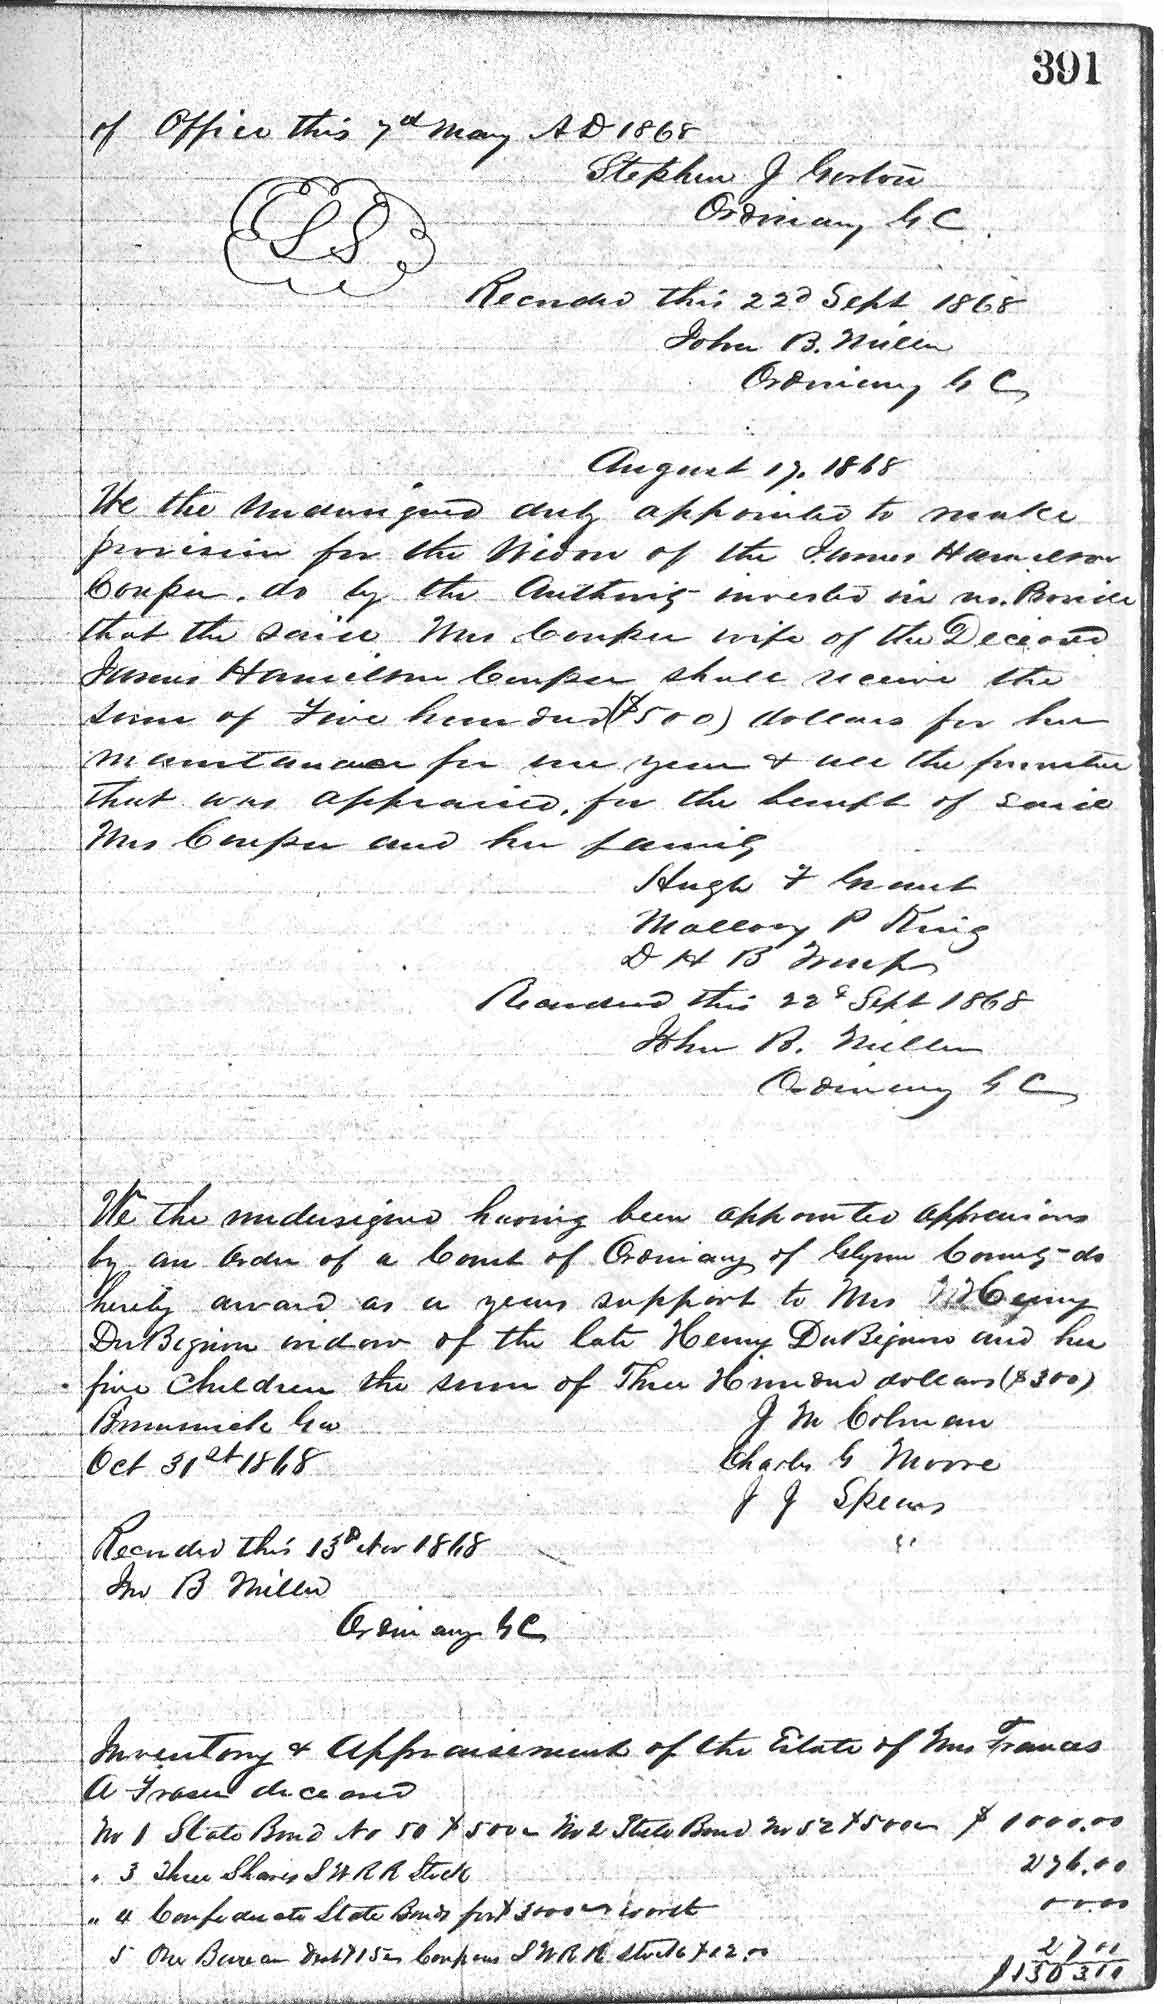 391
of Office this 7d May A D 1868
Stephen J Gorton
Ordinary G C.
LS
Recorded this 22d Sept 1868
John B. Miller
Ordinary G C
August 17. 1868
We the Undersigned duly appointed to make
provision for the Widow of the James Hamilton
Couper. do by the Authority invested in us.
that the said Mrs Couper wife of the Deceased
James Hamilton Couper shall receive the
sum of Five hundred ($500) dollars for her
maintanance for one year & all the furniture
that was appraised, for the benefit of said
Mrs Couper and her family
Hugh F Grant
Mallory P King
D H B Troup
Recorded this 22d Sept 1868
John B. Miller
Ordinary G C
We the undersigned having been appointed appraisers
by an order of a Court of Ordinary of Glynn County do
hereby award as a years support to Mrs Henry
DuBignon widow of the late Henry DuBignon and her
five Children the sum of Three Hundred dollars ($300)
Brunswick Ga
J M Colman
Oct 31st 1868
Charles G Moore
J J Spears
"
Recorded this 13d Nov 1868
Jno B Miller
Ordinary G C
Inventory & Appraisement of the Estate of Mrs Frances
A Fraser deceased
No 1 State Bond No 50 $500 No 2 State Bond No 52 $500 $1000.00
" 3 Three Shares S W R R Stock 276.00
" 4 Confederate State Bonds for $3000 worth 00.00
5 One Bureau $15 Coupons S W R R Stock $12.00 27 00
$1303 00